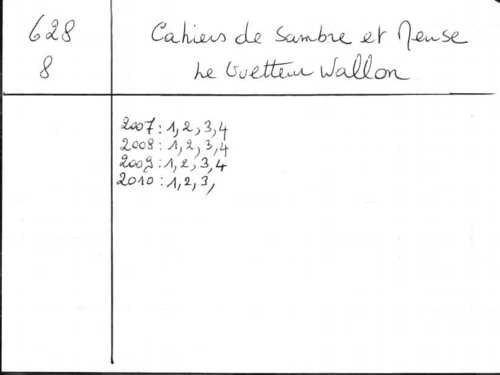 628
8
Cahiers de Sambre et Meuse
Le Guetteur Wallon
2007 : 1, 2, 3, 4
2008 : 1, 2, 3, 4
2009 : 1, 2, 3, 4
2010 : 1, 2, 3,